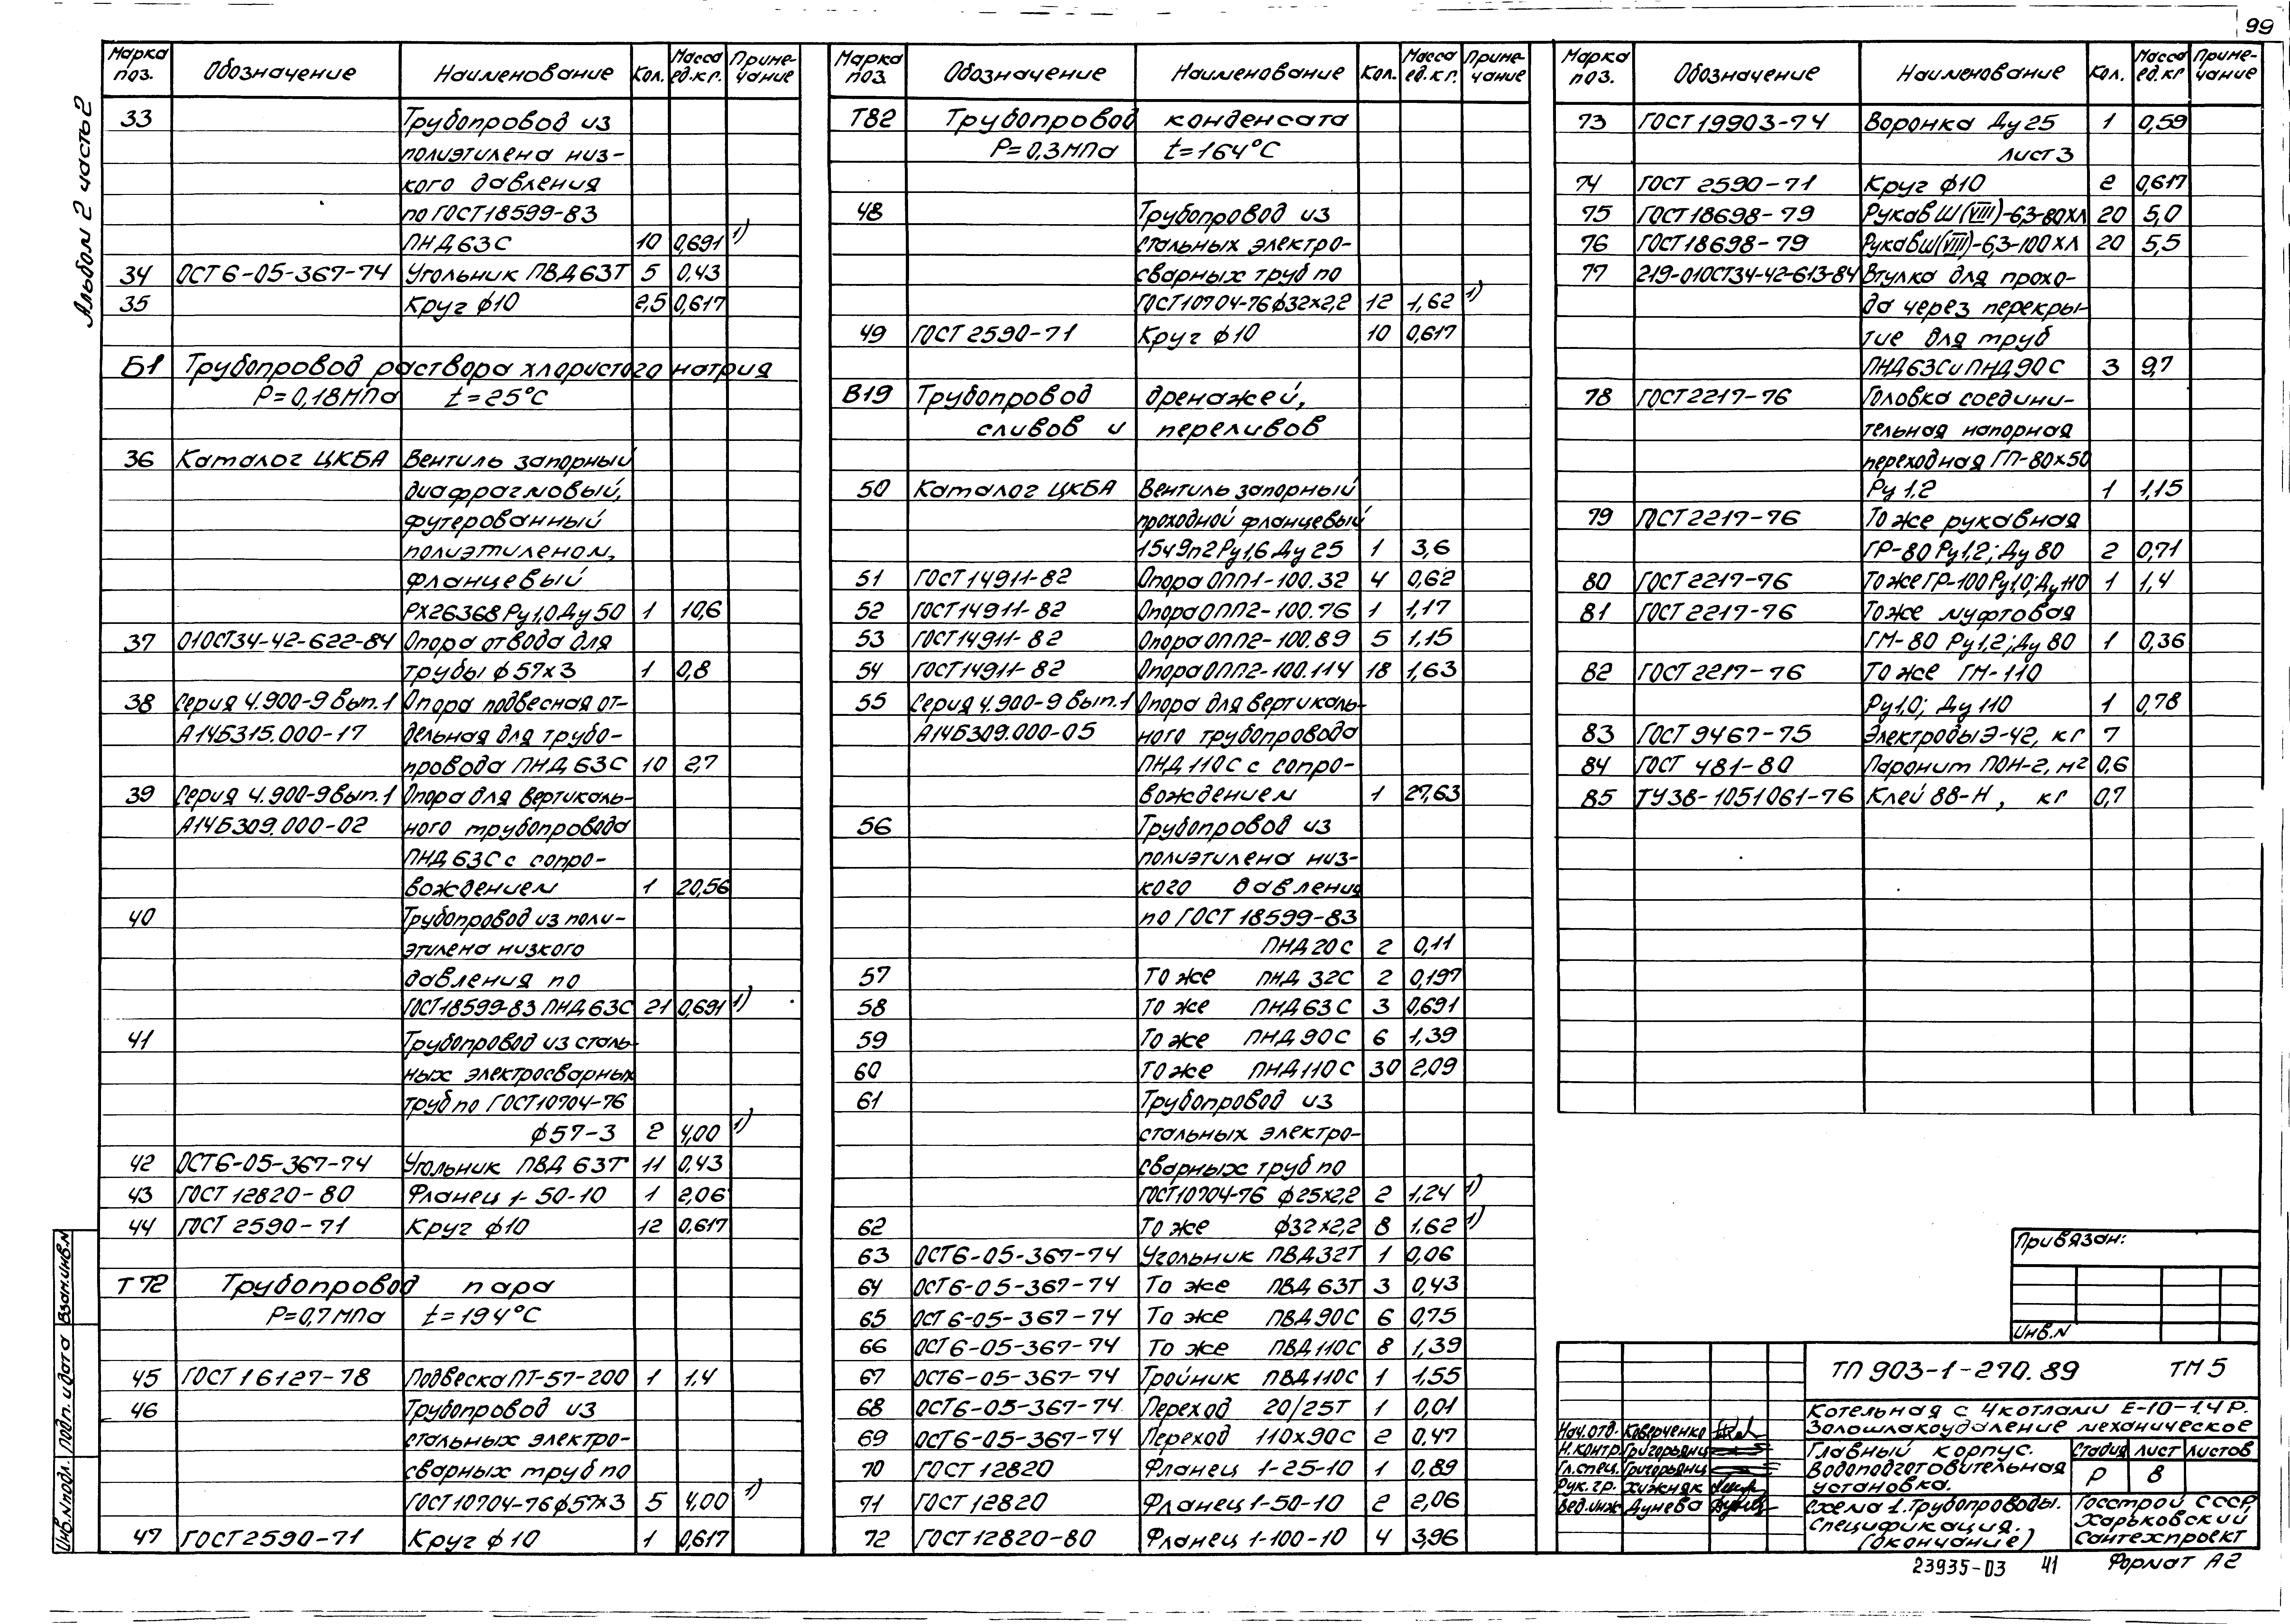 99
Альбом 2 часть 2
Марка поз. Обозначение Наименование Кол. Масса ед.кг. Примечание
33 Трубопровод из
полиэтилена низ-
кого давления
по ГОСТ18599-83
ПНД63С 10 0,691 1)
34 ОСТ6-05-367-74 Угольник ПВД63Т 5 0,43
35 Круг ф10 2,5 0,617
Б1 Трубопровод раствора хлористого натрия
Р=0,18МПа t=25°С
36 Каталог ЦКБА Вентиль запорный
диафрагмовый,
футерованный
полиэтиленом,
фланцевый
РХ26368 Ру1,0 Ду50 1 10,6
37 01ОСТ34-42-622-84 Опора отвода для
трубы ф57х3 1 0,8
38 Серия 4.900-9 вып.1 Опора подвесная от-
А14Б315.000-17 дельная для трубо-
провода ПНД63С 10 2,7
39 Серия 4.900-9 вып.1 Опора для вертикаль-
А14Б309.000-02 ного трубопровода
ПНД63С с сопро-
вождением 1 20,56
40 Трубопровод из поли-
этилена низкого
давления по
ГОСТ18599-83 ПНД63С 21 0,691 1)
41 Трубопровод из сталь-
ных электросварных
труб по ГОСТ10704-76
ф57-3 2 4,00 1)
42 ОСТ6-05-367-74 Угольник ПВД 63Т 11 0,43
43 ГОСТ 12820-80 Фланец 1-50-10 1 2,06
44 ГОСТ 2590-71 Круг ф10 12 0,617
Т72 Трубопровод пара
Р=0,7МПа t=194°С
45 ГОСТ 16127-78 Подвеска ПТ-57-200 1 1.4
46 Трубопровод из
стальных электро-
сварных труб по
ГОСТ10704-76 ф57х3 5 4,00 1)
47 ГОСТ2590-71 Круг ф10 1 0,617
Марка поз. Обозначение Наименование Кол. Масса ед.кг. Примечание
Т82 Трубопровод конденсата
Р=0,3МПа t=164°С
48 Трубопровод из
стальных электро-
сварных труб по
ГОСТ10704-76 ф32х2,2 12 1,62 1)
49 ГОСТ 2590-71 Круг ф10 10 0,617
В19 Трубопровод дренажей,
сливов и переливов
50 Каталог ЦКБА Вентиль запорный
проходной фланцевый
15ч9п2 Ру1,6 Ду 25 1 3,6
51 ГОСТ14911-82 Опора ОПП1-100.32 4 0,62
52 ГОСТ14911-82 Опора ОПП2-100.76 1 1,17
53 ГОСТ14911-82 Опора ОПП2-100.89 5 1,15
54 ГОСТ14911-82 Опора ОПП2-100.114 18 1,63
55 Серия 4.900-9 вып.1 Опора для вертикаль-
А14Б309.000-05 ного трубопровода
ПНД110С с сопро-
вождением 1 27,63
56 Трубопровод из
полиэтилена низ-
кого давления
по ГОСТ 18599-83
ПНД20С 2 0,11
57 То же ПНД 32С 2 0,197
58 То же ПНД63С 3 0,691
59 То же ПНД90С 6 1,39
60 То же ПНД110С 30 2,09
61 Трубопровод из
стальных электро-
сварных труб по
ГОСТ10704-76 ф25х2,2 2 1,24 1)
62 То же ф32х2,2 8 1.62 1)
63 ОСТ6-05-367-74 Угольник ПВД32Т 1 0,06
64 ОСТ6-05-367-74 То же ПВД 63Т 3 0,43
65 ОСТ6-05-367-74 То же ПВД90С 6 0,75
66 ОСТ6-05-367-74 То же ПВД110С 8 1,39
67 ОСТ6-05-367-74 Тройник ПВД110С 1 1,55
68 ОСТ6-05-367-74 Переход 20/25Т 1 0,01
69 ОСТ6-05-367-74 Переход 110х90С 2 0,47
70 ГОСТ 12820 Фланец 1-25-10 1 0,89
71 ГОСТ 12820 Фланец 1-50-10 2 2,06
72 ГОСТ12820-80 Фланец 1-100-10 4 3,96
Марка поз. Обозначение Наименование Кол. Масса ед.кг Примечание
73 ГОСТ19903-74 Воронка Ду 25 1 0,59
лист 3
74 ГОСТ 2590-71 Круг ф10 2 0,617
75 ГОСТ18698-79 Рукав Ш(VIII)-6,3-80ХЛ 20 5,0
76 ГОСТ18698-79 Рукав Ш(VIII)-6,3-100ХЛ 20 5,5
77 219-01ОСТ34-42-613-84 Втулка для прохо-
да через перекры-
тие для труб
ПНД63С и ПНД90С 3 9,7
78 ГОСТ2217-76 Головка соедини-
тельная напорная
переходная ГП-80х50
Ру 1,2 1 1,15
79 ГОСТ2217-76 То же рукавная
ГР-80 Ру1,2; Ду 80 2 0,71
80 ГОСТ2217-76 То же ГР-100 Ру1,0; Ду110 1 1,4
81 ГОСТ2217-76 То же муфтовая
ГМ-80 Ру1,2; Ду80 1 0,36
82 ГОСТ2217-76 То же ГМ-110
Ру1,0; Ду110 1 0,78
83 ГОСТ 9467-75 Электроды Э-42, кг 7
84 ГОСТ 481-80 Паронит ПОН-2, м² 0,6
85 ТУ38-1051061-76 Клей 88-Н, кг 0,7
Привязан:
Инв.N
ТП 903-1-270.89 ТМ5
Котельная с 4 котлами Е-10-1.4Р.
Золошлакоудаление механическое
Нач.отд. Коверченко
Н.контр. Григорьянц
Гл.спец. Григорьянц
Рук.гр. Хижняк
Вед.инж. Дунева
Главный корпус.
Водоподготовительная
установка.
Стадия Лист Листов
Р 8
Схема 1. Трубопроводы.
Спецификация.
(окончание)
Госстрой СССР,
Харьковский
Сантехпроект
Инв.N подл. Подп. и дата Взам.инв.N
23935-03 41 Формат А2